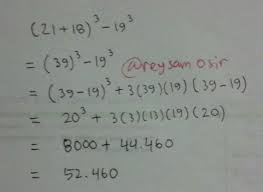 (21+18)³ - 19³
= (39)³ - 19³ @reysamosir
= (39-19)³ + 3(39)(19)(39-19)
= 20³ + 3(3)(13)(19)(20)
= 8000 + 44.460
= 52.460